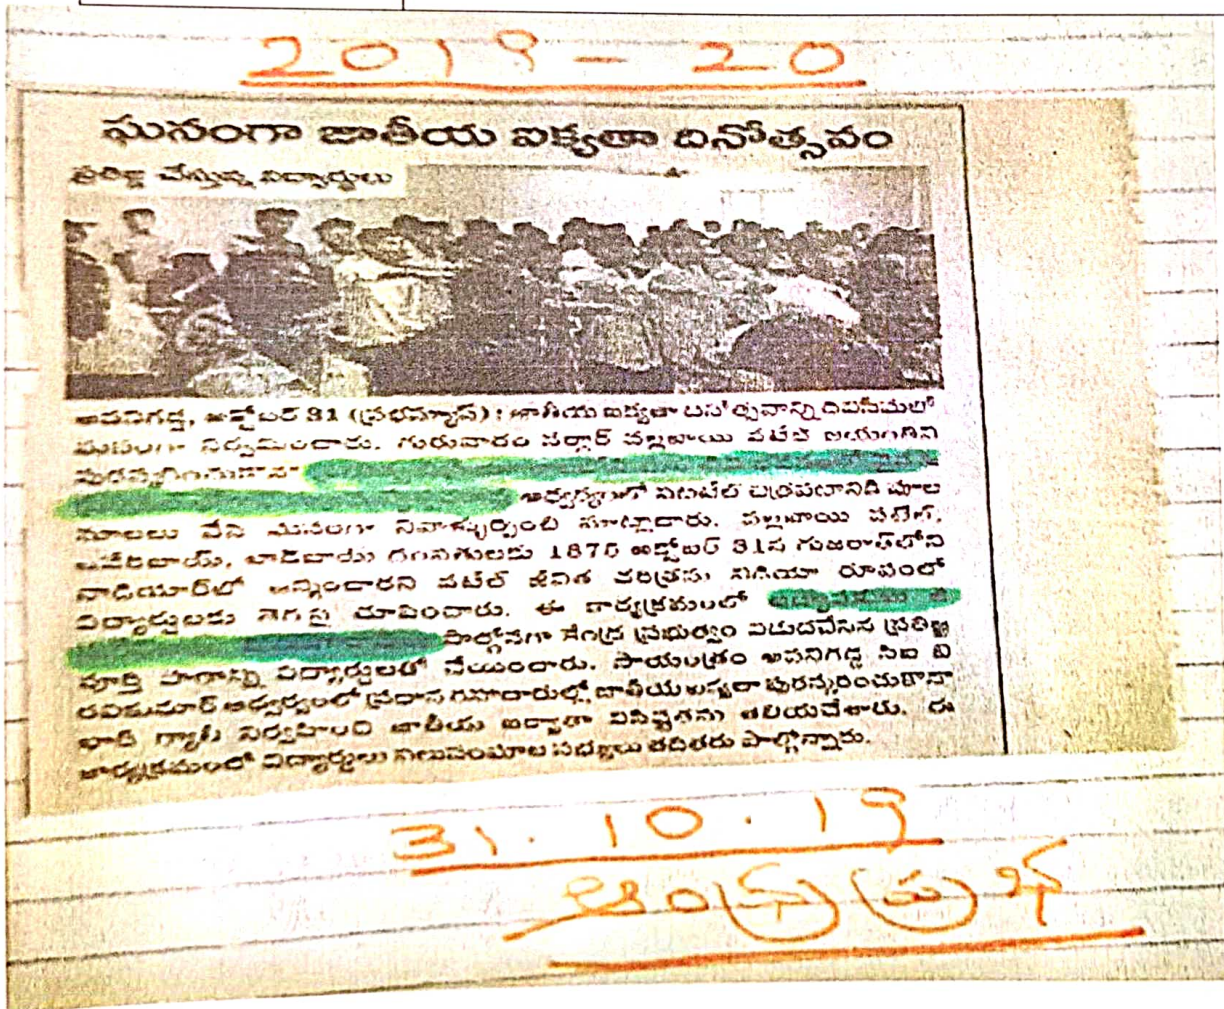 2019 - 20
ఘనంగా జాతీయ ఐక్యతా దినోత్సవం
ప్రతిజ్ఞ చేస్తున్న విద్యార్థులు
అవనిగడ్డ, అక్టోబర్ 31 (ప్రభన్యూస్): జాతీయ ఐక్యతా దినోత్సవాన్ని దివిసీమలో
ఘనంగా నిర్వహించారు. గురువారం సర్దార్ వల్లభాయి పటేల్ జయంతిని
పురస్కరించుకొని
ఆధ్వర్యంలో చిత్రపటానికి పూల
మాలలు వేసి ఘనంగా నివాళ్ళర్పించి వల్లభాయి పటేల్,
1875 అక్టోబర్ 31న గుజరాత్‌లోని
నాడియార్‌లో జన్మించారని పటేల్ జీవిత చరిత్రను వీడియో రూపంలో
విద్యార్థులకు తెరపై చూపించారు. ఈ కార్యక్రమంలో
పాల్గొనగా కేంద్ర ప్రభుత్వం విడుదచేసిన ప్రతిజ్ఞ
పూర్తి పాఠాన్ని విద్యార్థులతో చేయించారు. సాయంత్రం అవనిగడ్డ సిఐ బి
రవికుమార్ ఆధ్వర్యంలో ప్రధాన రహదారుల్లో జాతీయ ఐక్యతా పురస్కరించుకొని
భారీ ర్యాలీ నిర్వహించి జాతీయ ఐక్యతా విశిష్టతను తెలియచేశారు. ఈ
కార్యక్రమంలో విద్యార్థులు సభ్యులు తదితరు పాల్గొన్నారు.
31.10.19
ఆంధ్రప్రభ